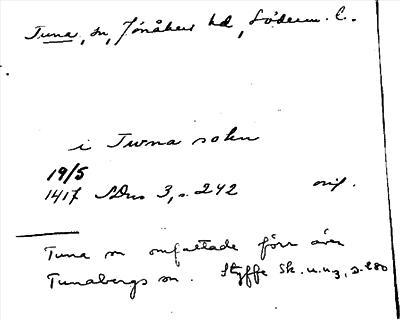 Tuna, sn, Jönåkers hd, Söderm. l.
i Twna sokn
19/5
1417 SDns 3, s. 242 orig.
Tuna sn omfattade förr även
Tunabergs sn. Styffe Sk. u. u 3, s. 280